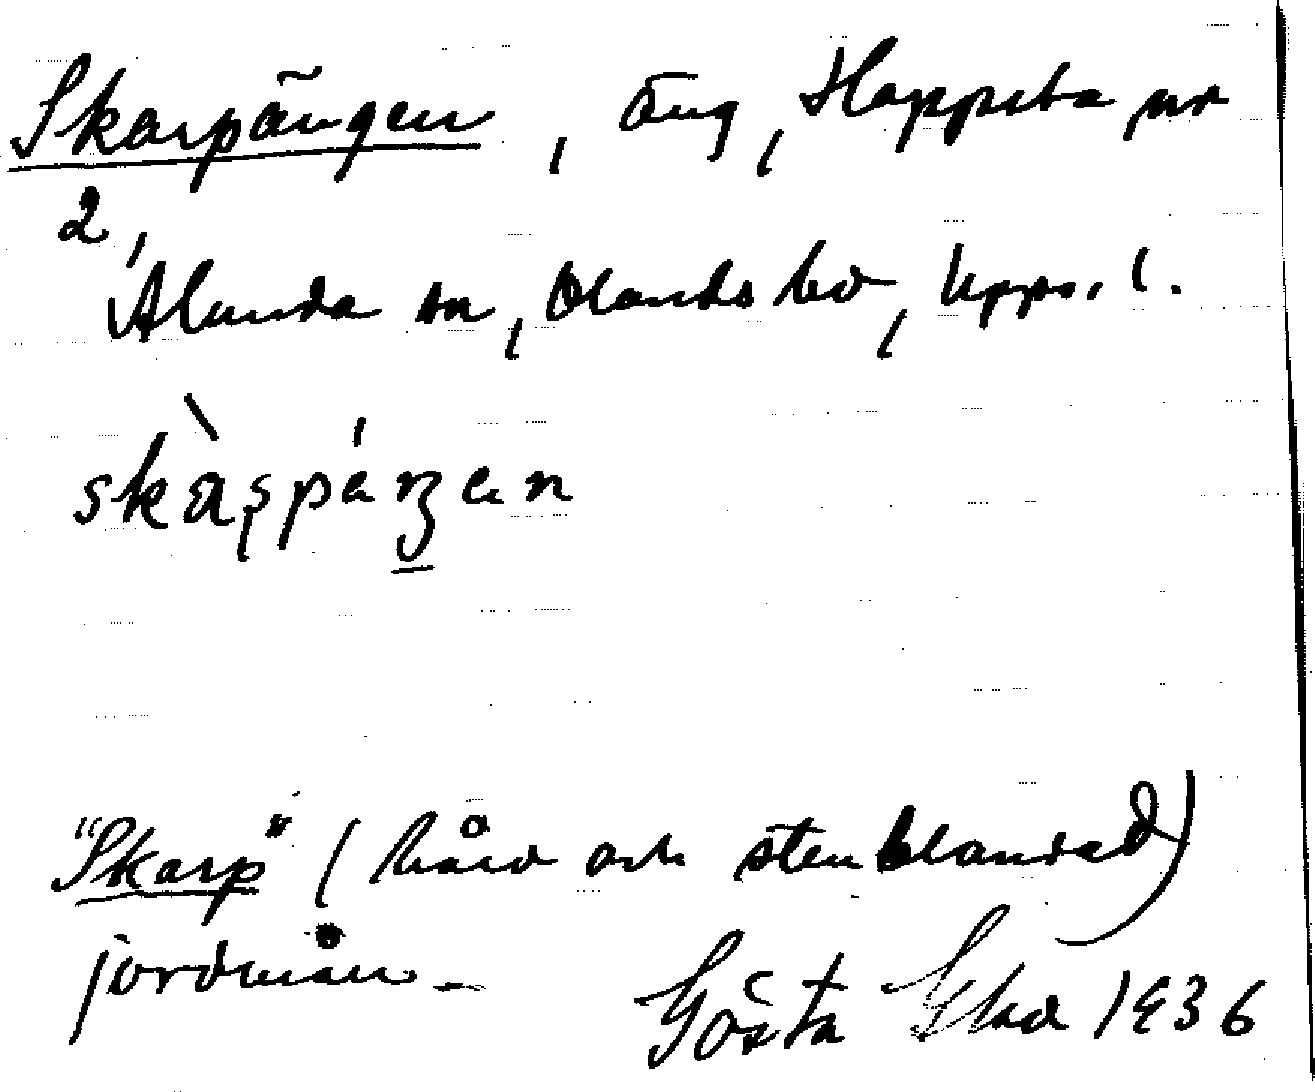 Skarpängen, äng, Hoppsta nr
2,
Ålunda sn, Olands hd, Upps. l.
skàṣpáŋen
"Skarp" (hård och stenblandad)
jordmån. _
Gösta Ekd 1936